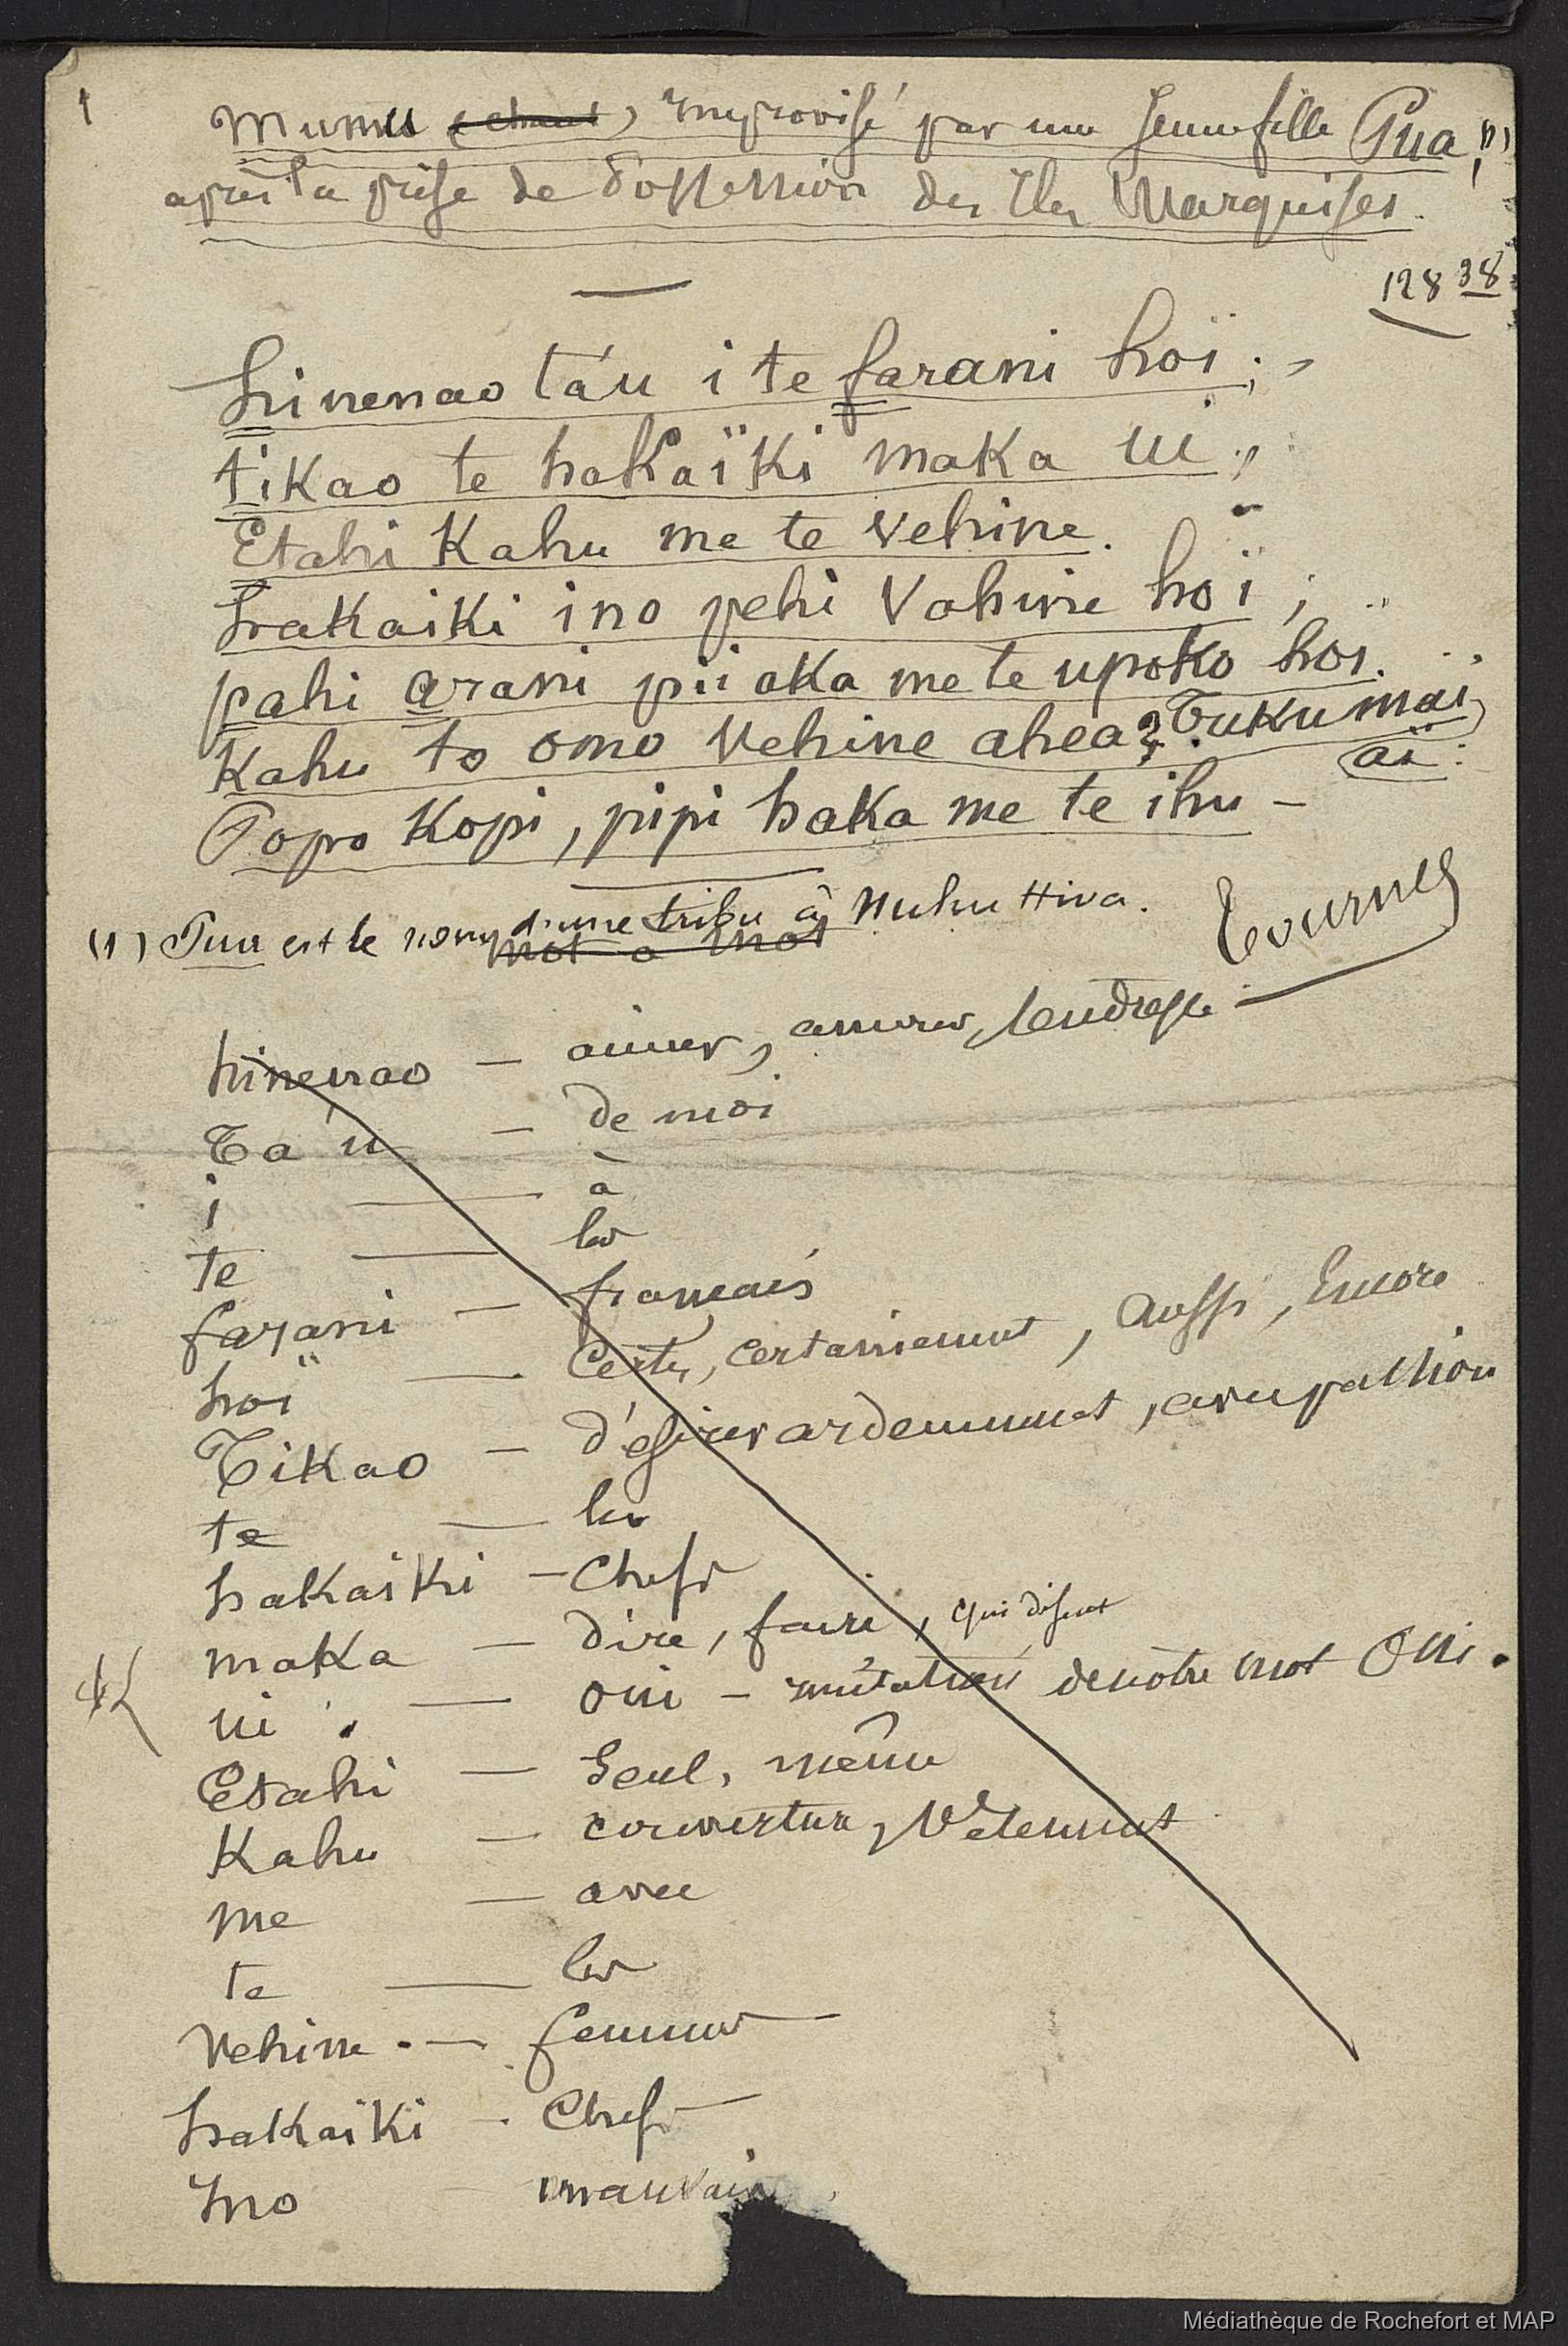 1
Mumu (chant), Improvisé par une Jeune fille Pua, (1)
après la prise de Possession des Iles Marquises.
128 38
hinenao ta'u i te farani hoï ;
tikao te hakaïki maka ui ,
Etahi Kahu me te Vehine.
hakaiki ino pehi Vahine hoï ;
pahi arani pii aka me te upoko hoi.
Kahu to omo Vehine ahea? Tuku mai
ai.
Popo Kopi, pipi haka me te ihu -
(1) Pua est le nom d'une tribu à Nuku Hiva.
mot a mot
Tournez
hinenao - aimer, amour, tendresse
Ta'u - de moi
i - à
te - les
farani - français
hoï - Certes, certainement, aussi, Encore
Tikao - désirer ardemment, avec passion
te - les
hakaiki - Chefs
maka - dire, faire, qui disent
ui - oui - imitation de notre mot Oui.
Etahi - Seul, même
Kahu - couverture, Vêtement
me - avec
te - les
Vehine - femmes
hakaiki - Chefs
Ino mauvais
Médiathèque de Rochefort et MAP